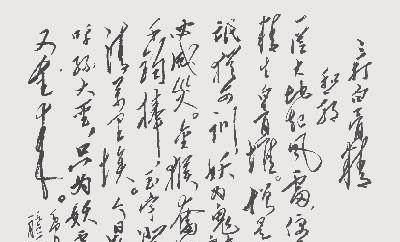 三打白骨精
一从大地起风雷,便
精生白骨堆。僧是
氓犹可训,妖为鬼
必成灾。金猴奋
千钧棒,玉宇
清万里埃。今日
呼孙大圣,只为妖
又重来。